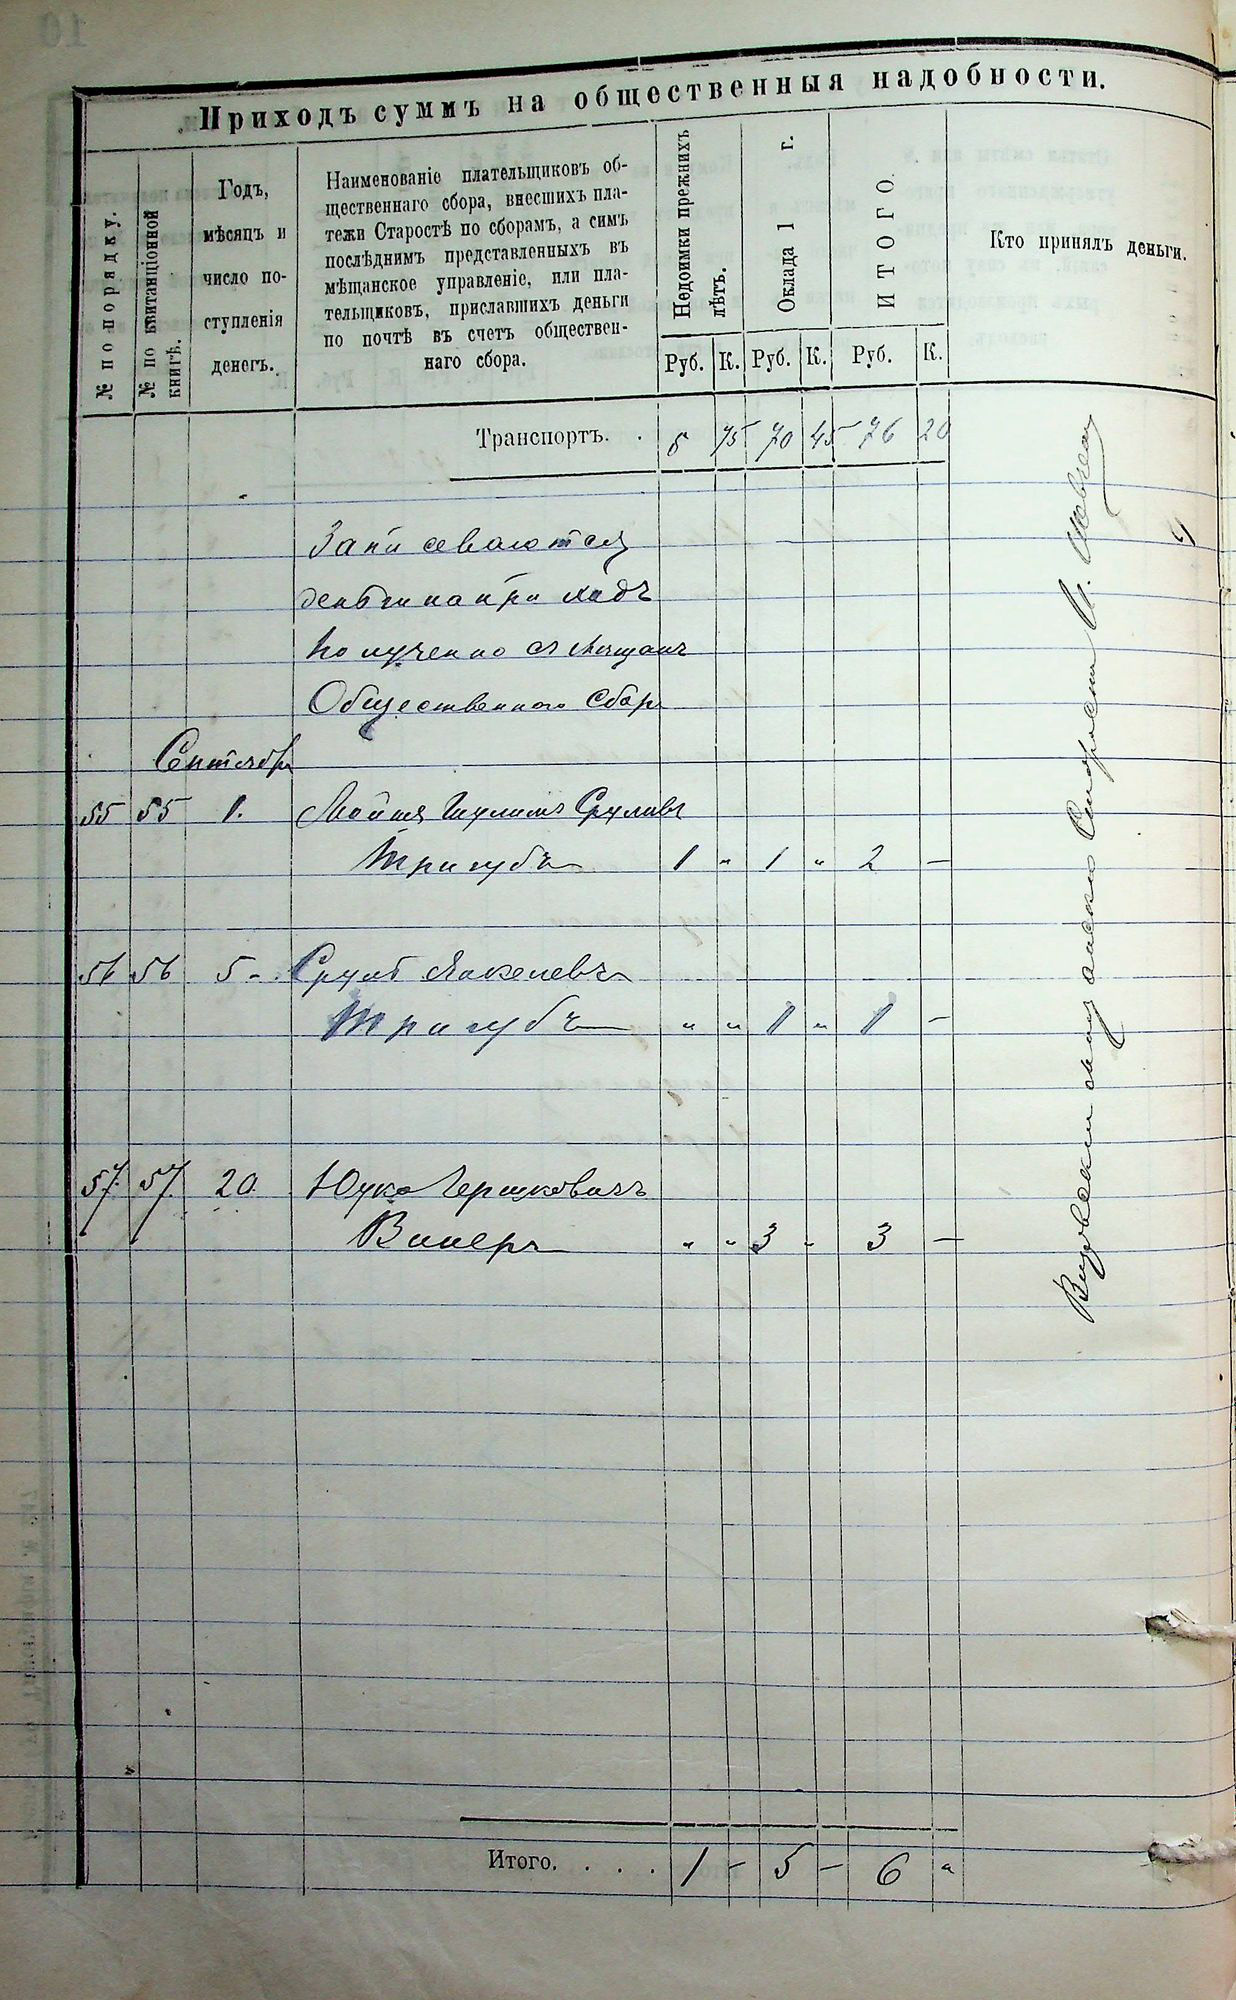 Приходъ суммъ на общественныя надобности.
№ по порядку.
№ по квитанціонной
книгѣ.
Годъ,
мѣсяцъ и
число по-
ступленія
денегъ.
Наименованіе плательщиковъ об-
щественнаго сбора, внесшихъ пла-
тежи Старостѣ по сборамъ, а симъ
послѣднимъ представленныхъ въ
мѣщанское управленіе, или пла-
тельщиковъ, приславшихъ деньги
по почтѣ въ счетъ обществен-
наго сбора.
Недоимки прежнихъ
лѣтъ.
Оклада 1 г.
ИТОГО.
Кто принялъ деньги.
Руб. К. Руб. К. Руб. К.
Транспортъ. . 5 75 70 45 76 20
Записеваются
деньги на приходъ
Получено съ Мещанъ
Общественного Сбора
Сентябрь
55 55 1. Мойше Шулимъ Сруливъ
Тригубъ 1 " 1 " 2 —
56 56 5 - Сруль Янкелевъ
Тригубъ " " 1 " 1 —
57 57 20 Юуко Гершковичъ
Винеръ " " 3 " 3 —
Итого. . . . 1 - 5 - 6 "
Мещански Староста